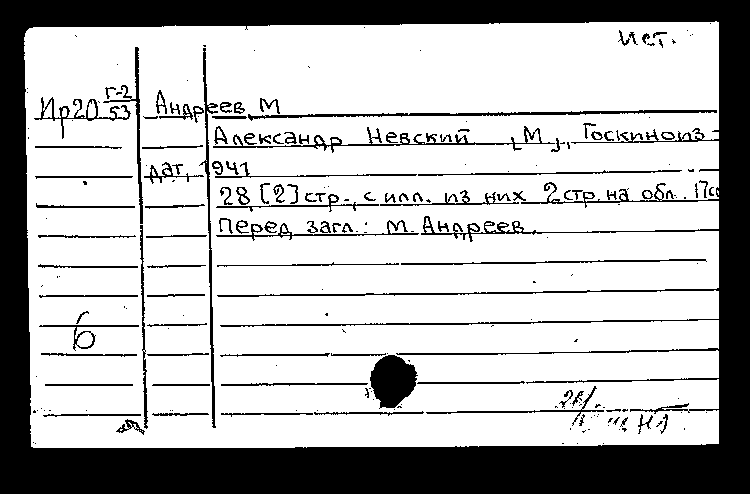 Ист.
Ир20 Г-2/53 Андреев, М
Александр Невский [М], Госкиноиз-
дат, 1941
28, [2] стр., с илл. из них 2 стр. на обл. 17с
Перед загл.: М. Андреев.
6